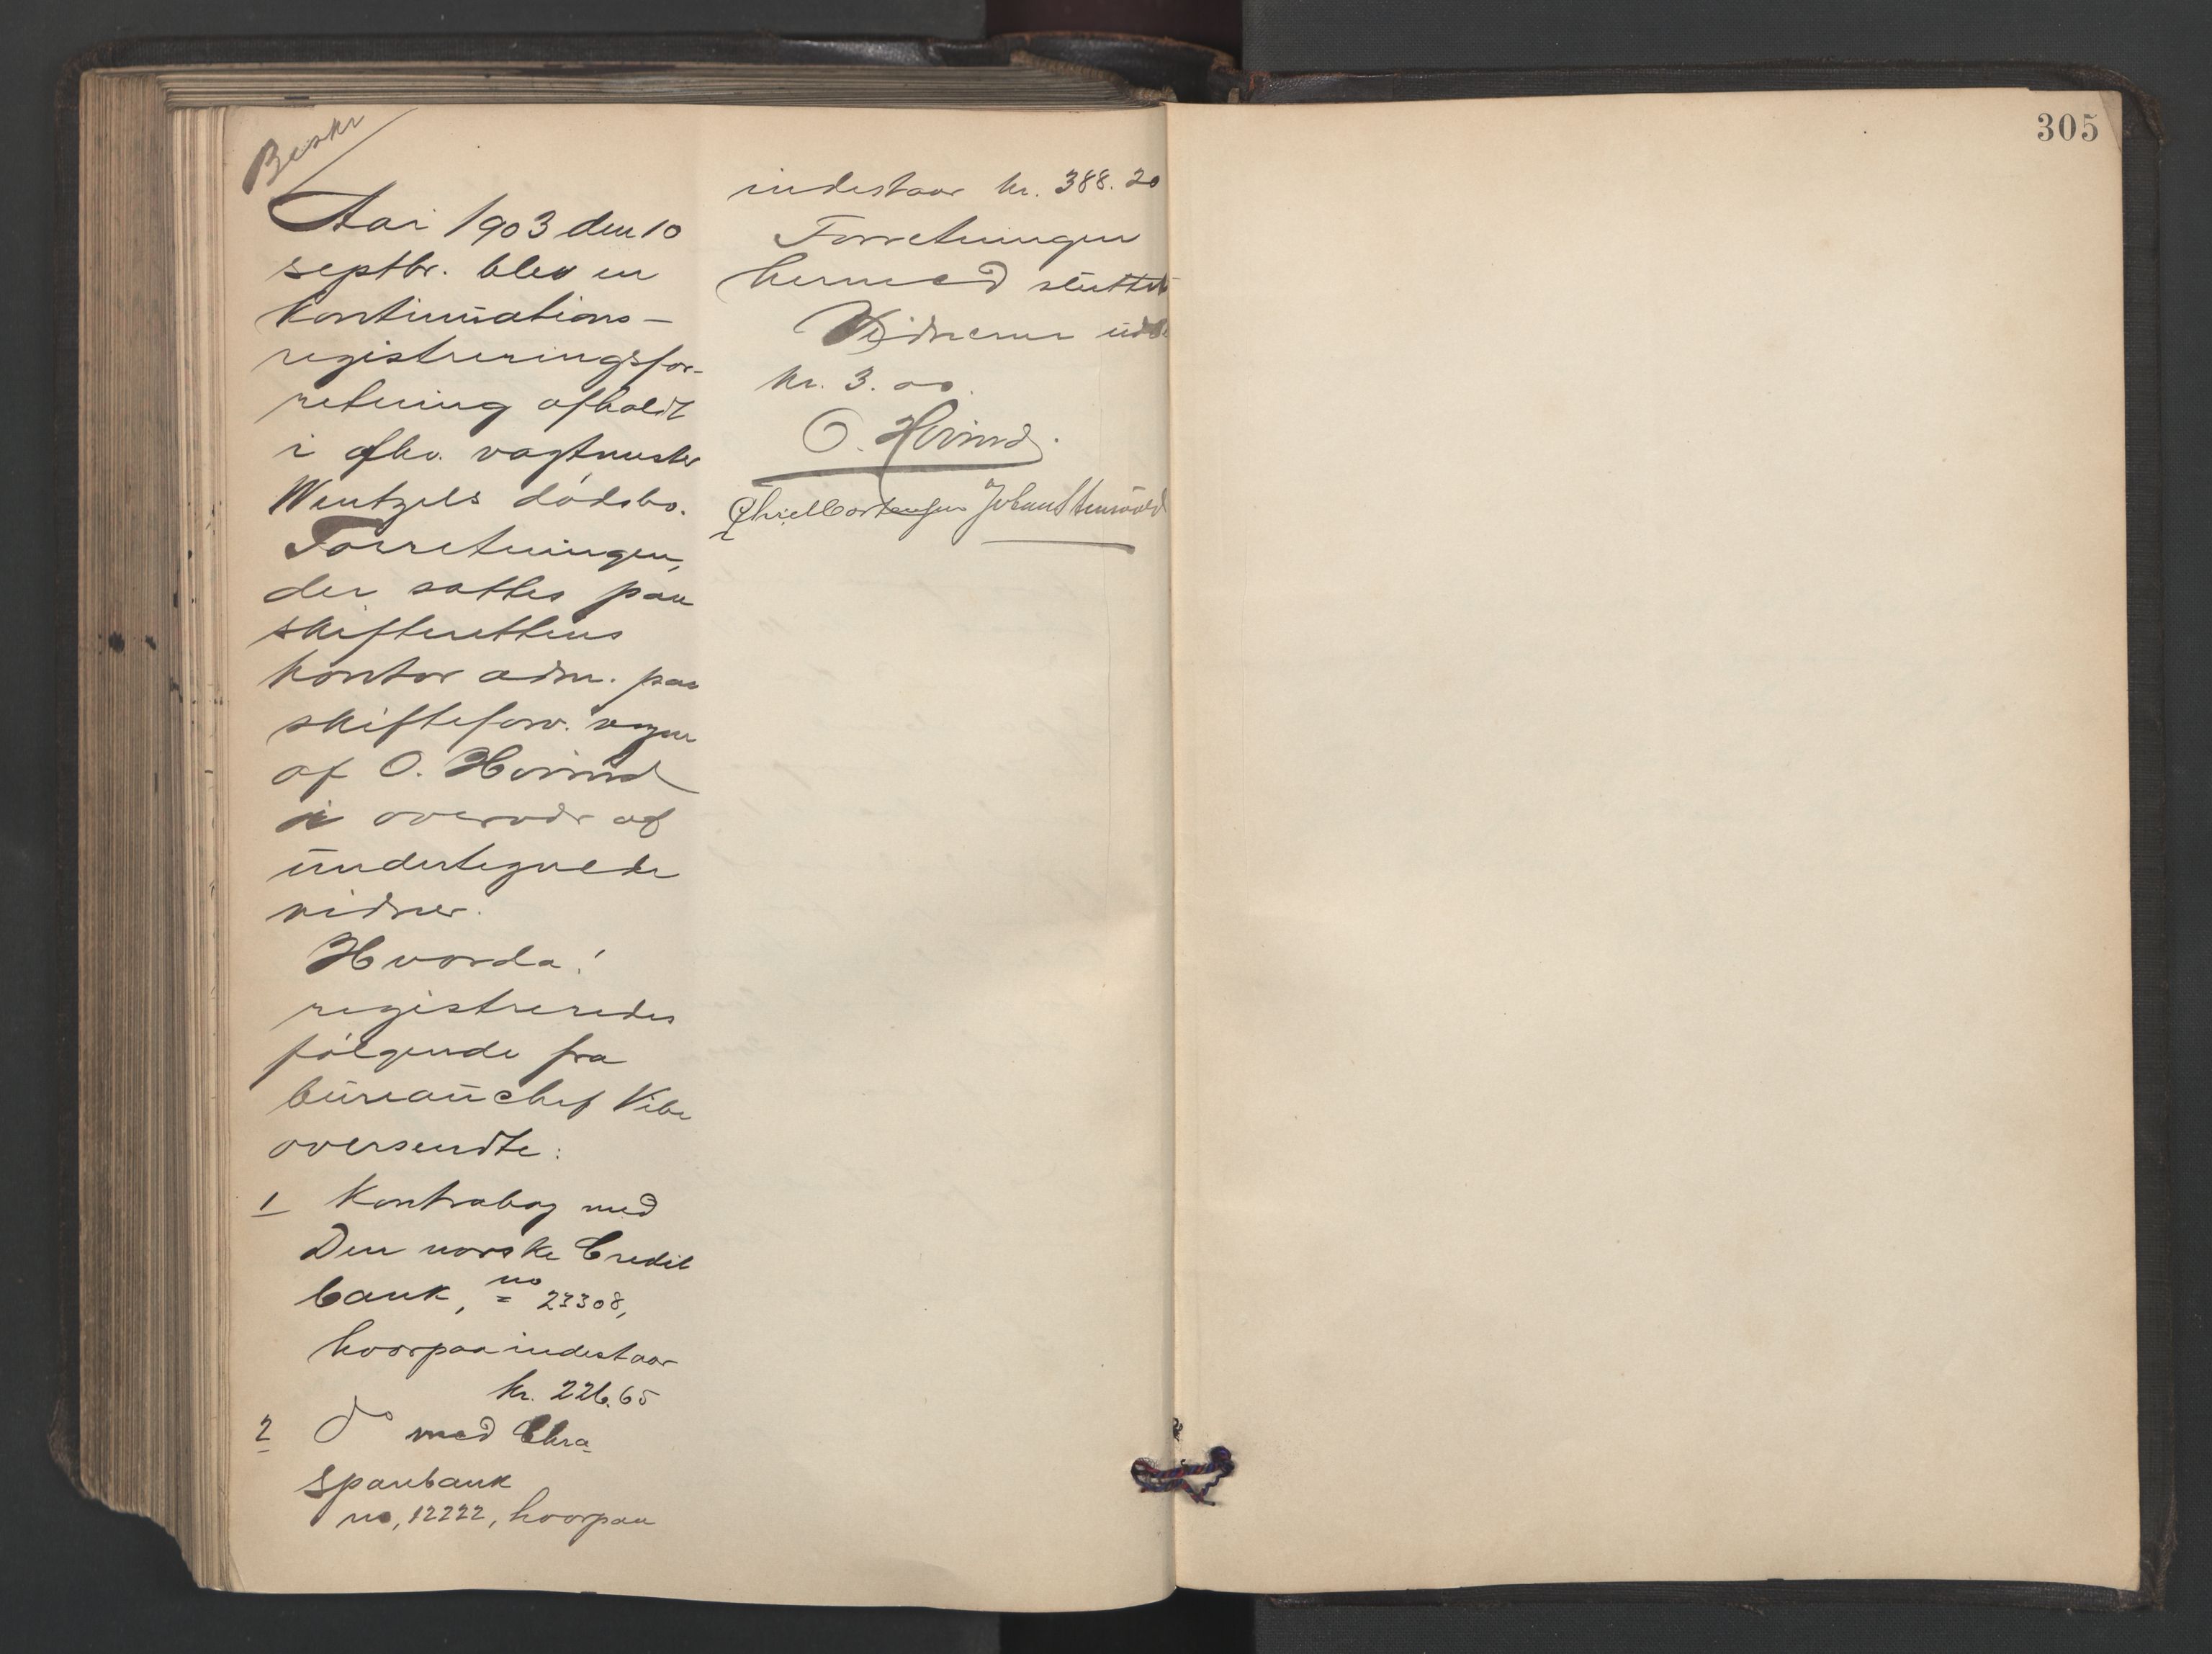 Beskr
Aar 1903 den 10
septbr. blev en
kontinuations-
registreringsfor-
retning afholdt
i afdv. vagtmester
Wentzels dødsbo.
Forretningen,
der sattes paa
skifterettens
kontor adm. paa
skifteforv. vegne
af O. Hovind
i overvær af
undertegnede
vidner.
Hvorda!
registreredes
følgende fra
bureauchef Vibe
oversendte:
1 Kontrabog med
Den norske Credit
bank, no 23308,
hvorpaa indestaar
kr. 226.65
2 do med Chra
sparebank
no, 12222, hvorpaa
indestaar kr. 388.20
Forretningen
hermed sluttet
Vidnerne
kr. 3.00.
O. Hovind.
Johan
305